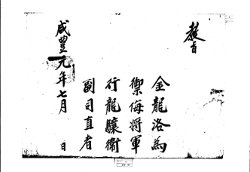 教旨
金龍洛為
禦侮將軍
行龍驤衛
副司直者
咸豐元年七月 日